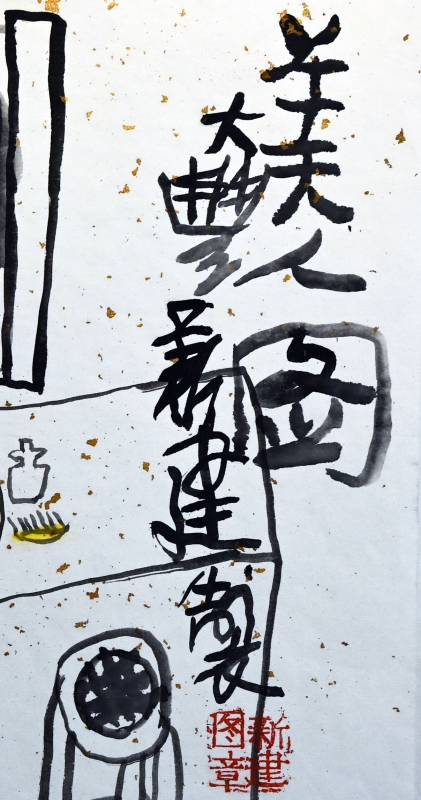 美人图
大豐
新建製
新建
图章